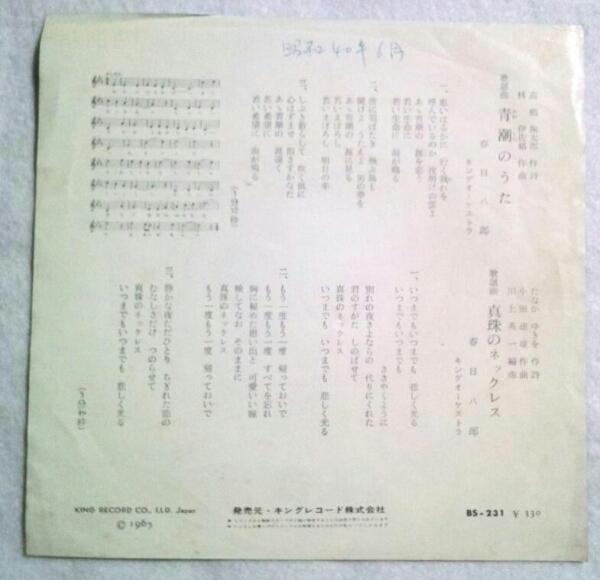 昭和40年6月
高橋掬太郎 作詩
林 伊佐緒 作曲
歌謡曲 青潮のうた
春日八郎
キングオーケストラ
一、思いはるかに 行く我れを
呼んでいるのか 夜明けの雲よ
あゝ青潮の 涯を恋う
若い生命に 血が鳴る
二、波に羽ばたき 飛ぶ鳥も
聞けよ うたえよ 男の夢を
あゝ青潮の 涯に見る
若いまぼろし 明日の幸
三、しぶき散らして 吹く風に
心はずませ 指さすかなた
あゝ青潮の 涯遠く
若い希望に 血が鳴る
たなか ゆきを 作詩
小田進雄 作曲
川上英一 編曲
歌謡曲 真珠のネックレス
春日八郎
キングオーケストラ
一、いつまでもいつまでも 悲しく光る
いつまでもいつまでも
ささやくように
別れの夜さよならの 代りにくれた
君のすがた しのばせて
真珠のネックレス
いつまでも いつまでも 悲しく光る
二、もう一度もう一度 帰っておいで
もう一度もう一度 すべてを忘れ
胸に秘めた思い出と 可愛いい瞳
映してなお そのままに
真珠のネックレス
もう一度 もう一度 帰っておいで
三、静かな夜ただひとり ちぎれた恋の
むなしさだけ つのらせて
真珠のネックレス
いつまでもいつまでも 悲しく光る
KING RECORD CO., LTD. Japan
© 1965
発売元・キングレコード株式会社
BS-231 ¥330